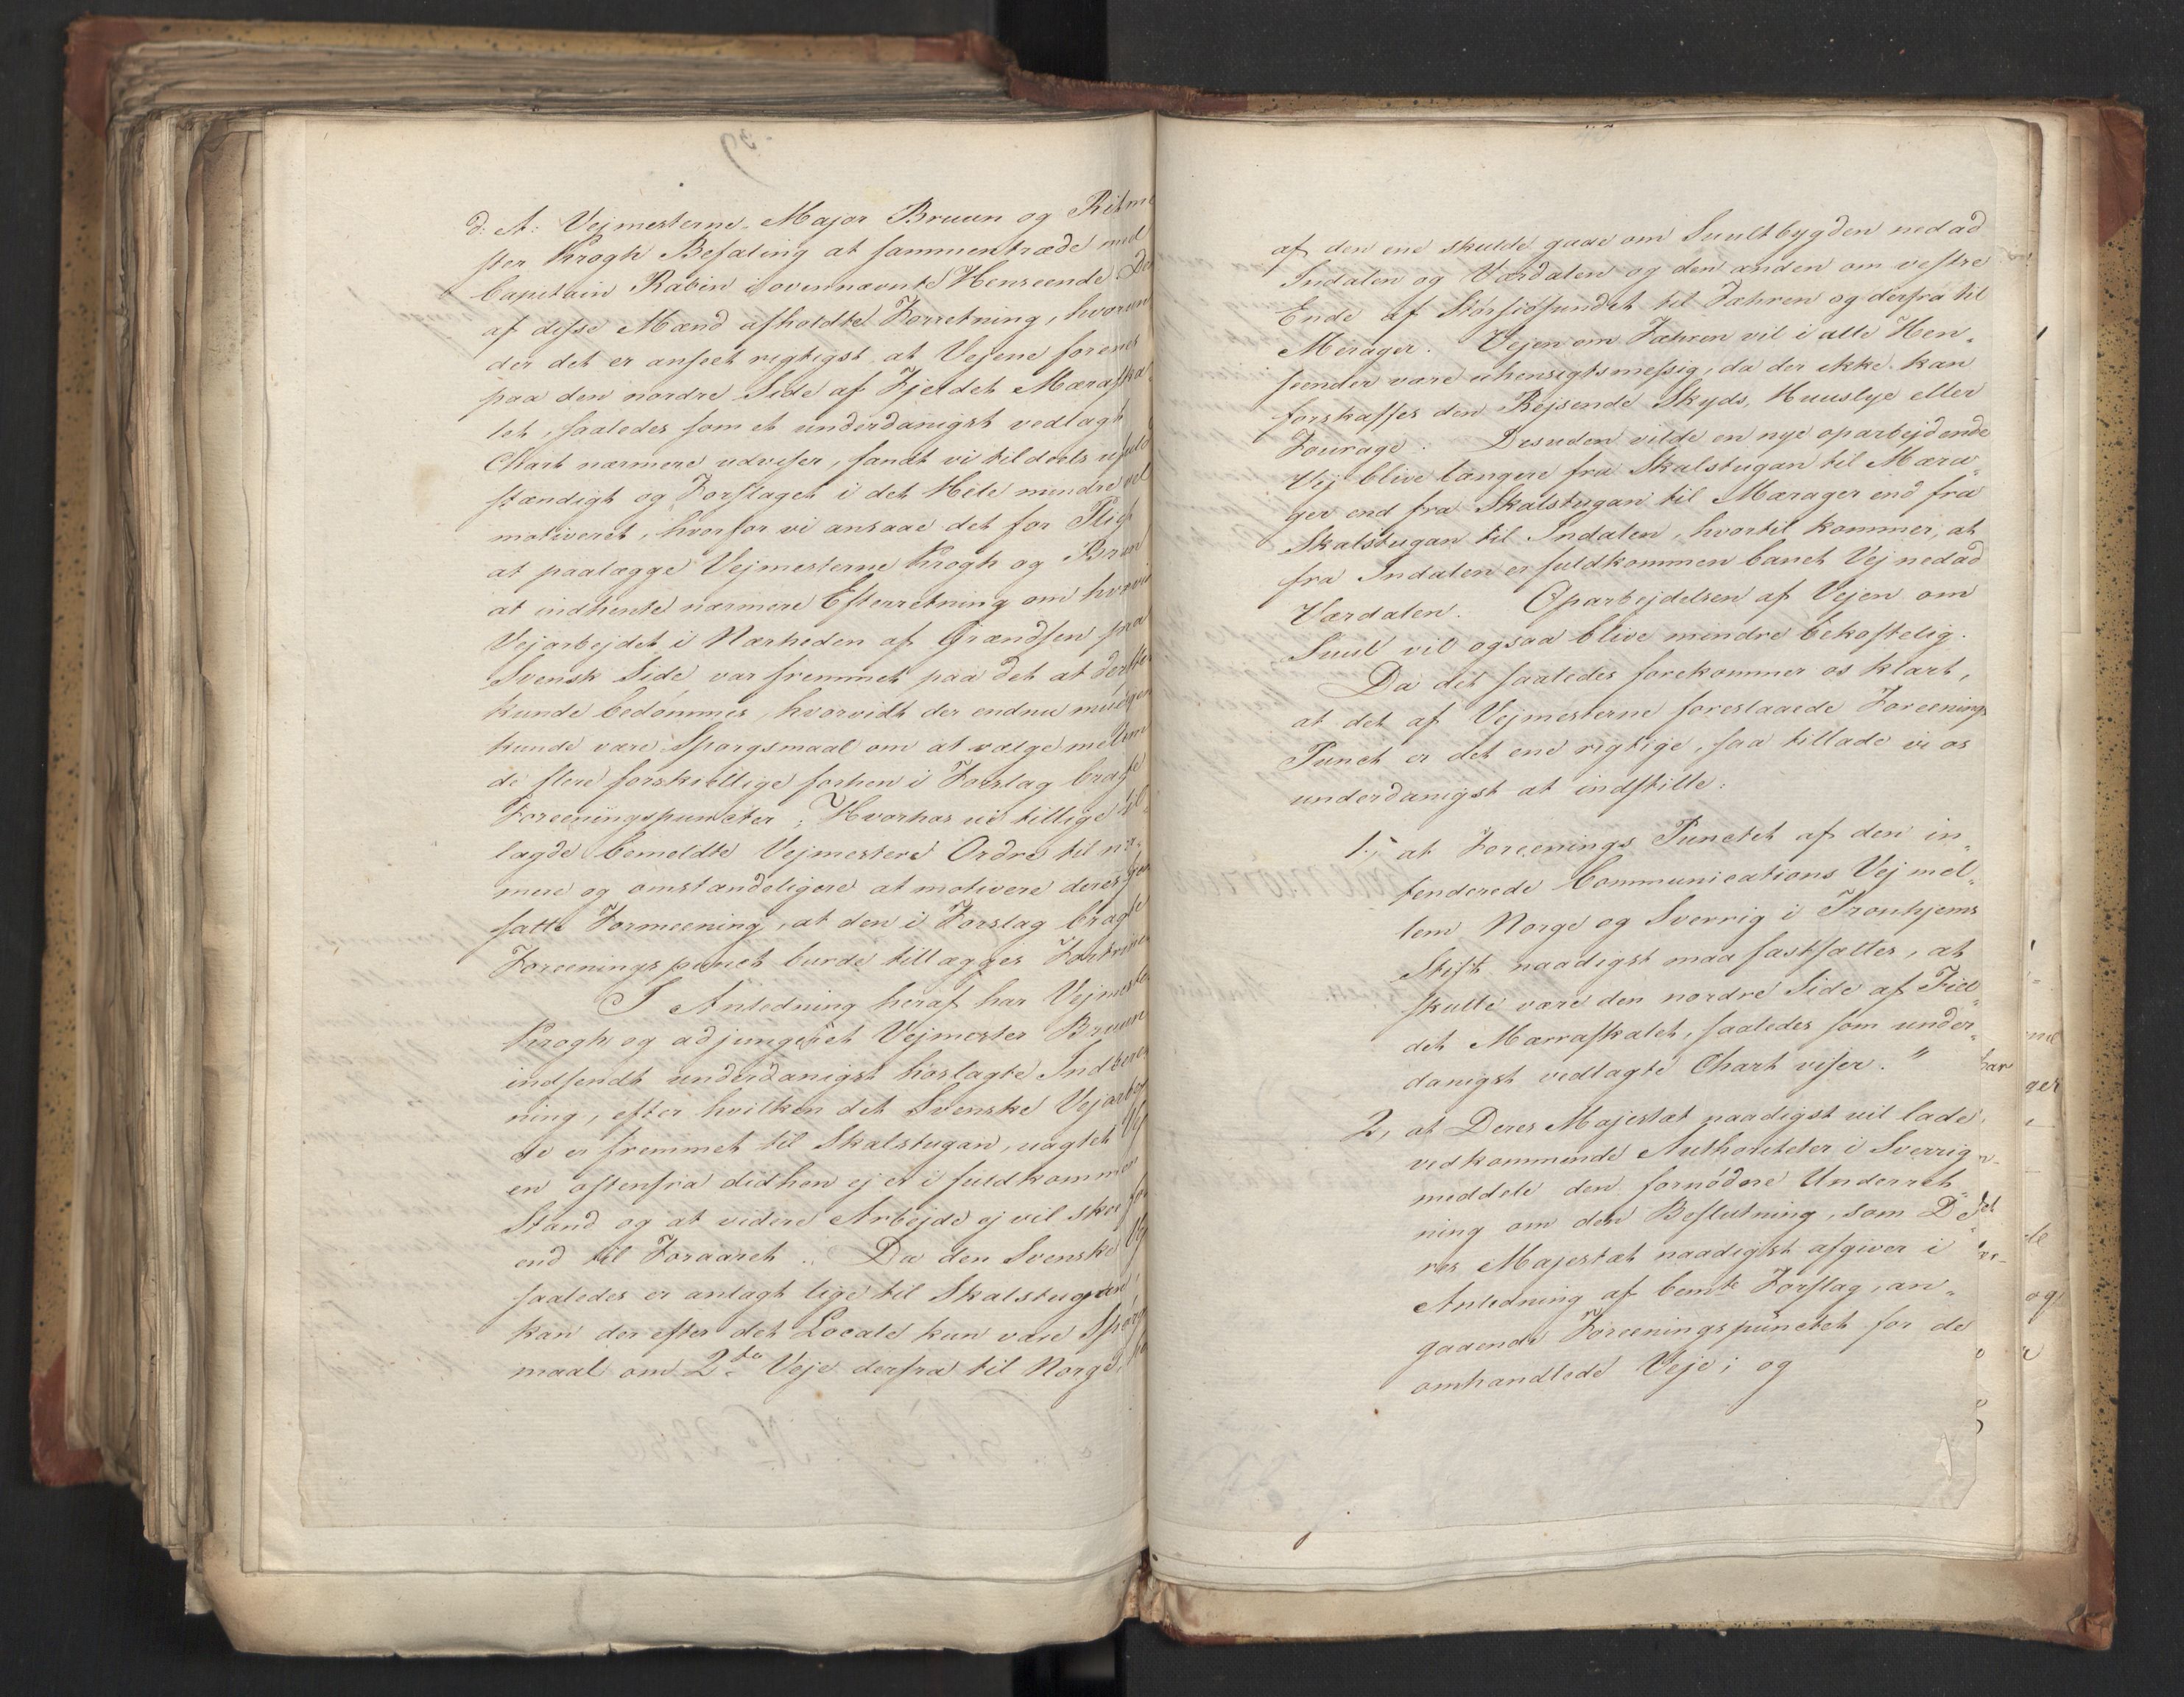 39
d: A: Vejmesterne Major Bruun og Ritme
ster Krogh Befaling at sammentræde med
Capitain Rabin i ovennævnte Henseende. Den
af disse Mænd afholdte Forretning, hvorun
der det er anseet rigtigst at Vejene forenes
paa den nordre Side af Fjeldet Mæraskal
let, saaledes som et underdanigst vedlagt
Chart nærmere udviser, fandt vi tildeels ufuld
stændigt og Forslaget i det Hele mindre vel
motiveret, hvorfor vi ansaae det for Pligt
at paalægge Vejmesterne Krogh og Bruun
at indhente nærmere Efterretning om hvorvidt
Vejarbejdet i Nærheden af Grændsen paa
Svensk Side var fremmet paa det at derefter
kunde bedömmes, hvorvidt der endnu muligen
kunde være Spørgsmaal om at vælge mellem
de flere forskiellige forhen i Forslag bragte
Foreeningspuncter; Hvorhos vi tillige til
lagde bemeldte Vejmestere Ordre til nær-
mere og omstændeligere at motivere deres frem
satte Formeening, at den i Forslag bragte
Foreenings punct burde tillægges Fortrinet
I Anledning heraf har Vejmester
Krogh og adjungeret Vejmester Bruun
indsendt underdanigst hoslagte Indberet
ning, efter hvilken det Svenske Vejarbej
de er fremmet til Skalstugan, uagtet Vej
en østenfra didhen ej er i fuldkommen
Stand og at videre Arbejde ej vil skee för
end til Foraaret. Da den Svenske Vej
saaledes er anlagt lige til Skalstugan,
kan der efter det Locale kun være Spörgs
maal om 2de Veje derfra til Norge,
af den ene skulde gaae om Suultbygden nedad
Indalen og Værdalen og den anden om vestre
Ende af Storsiösundet til Fæhren og derfra til
Merager. Vejen om Fæhren vil i alle Hen-
seender være uhensigtsmessig, da der ikke kan
forskaffes den Rejsende Skyds, Huuslye eller
Fourage. Desuden vilde en nye oparbejdende
Vej blive længere fra Skalstugan til Mæra-
ger end fra Skalstugan til Mærager end fra
Skalstugan til Indalen, hvortil kommer, at
fra Indalen er fuldkommen banet Vej nedad
Værdalen. Oparbejdelsen af Vejen om
Suul vil ogsaa blive mindre bekostelig.
Da det saaledes forekommer os klart,
at det af Vejmesterne foreslaaede Foreenings
Punct er det ene rigtige, saa tillade vi os
underdanigst at indstille:
1, at Foreenings Punctet af den in-
tenderede Communications Vej mel-
lem Norge og Sverrig i Tronhjems
Stift naadigst maa fastsættes, at
skulle være den nordre Side af Fiel-
det Mærraskalet, saaledes som under-
danigst vedlagte Chart viser."
2, at Deres Majestæt naadigst vil lade
vedkommende Authoriteter i Sverrig
meddele den fornödne Underret
ning om den Beslutning, som De-
res Majestæt naadigst afgiver i
Anledning af bemte Forslag, an-
gaaende Foreeningspunctet for de
omhandlede Veje; og